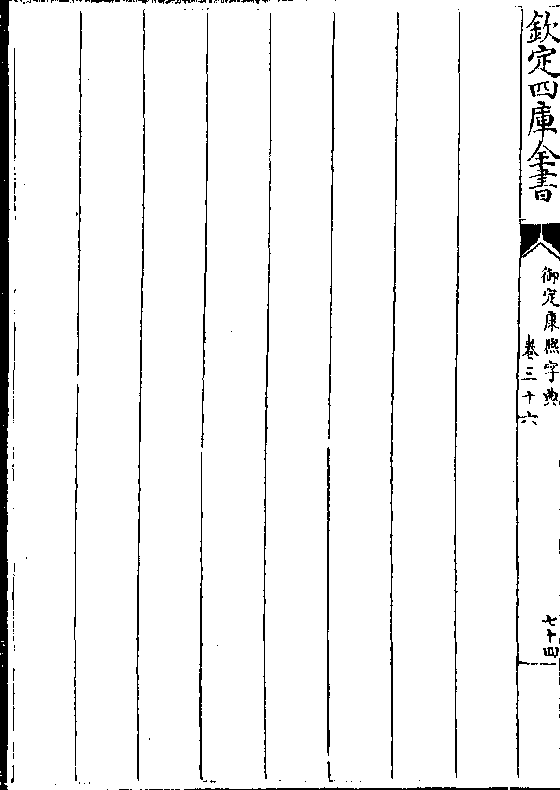 欽定四庫全書
御定康熙字典
卷三十六
七十四